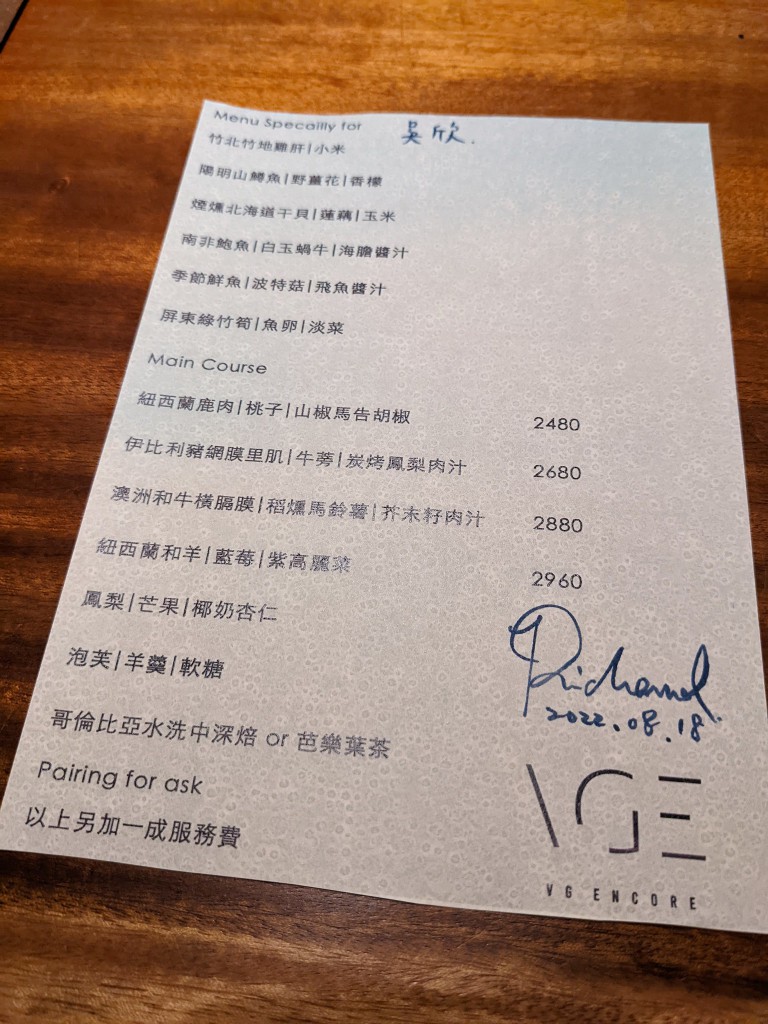 Menu Specailly for 吳欣.
竹北竹地雞肝|小米
陽明山鱒魚|野薑花|香檬
煙燻北海道干貝|蓮藕|玉米
南非鮑魚|白玉蝸牛|海膽醬汁
季節鮮魚|波特菇|飛魚醬汁
屏東綠竹筍|魚卵|淡菜
Main Course
紐西蘭鹿肉|桃子|山椒馬告胡椒 2480
伊比利豬網膜里肌|牛蒡|炭烤鳳梨肉汁 2680
澳洲和牛橫膈膜|稻燻馬鈴薯|芥末籽肉汁 2880
紐西蘭和羊|藍莓|紫高麗菜 2960
鳳梨|芒果|椰奶杏仁
泡芙|羊羹|軟糖
哥倫比亞水洗中深焙 or 芭樂葉茶
Pairing for ask
以上另加一成服務費
Richard.
2022.08.18
VGE
VG ENCORE